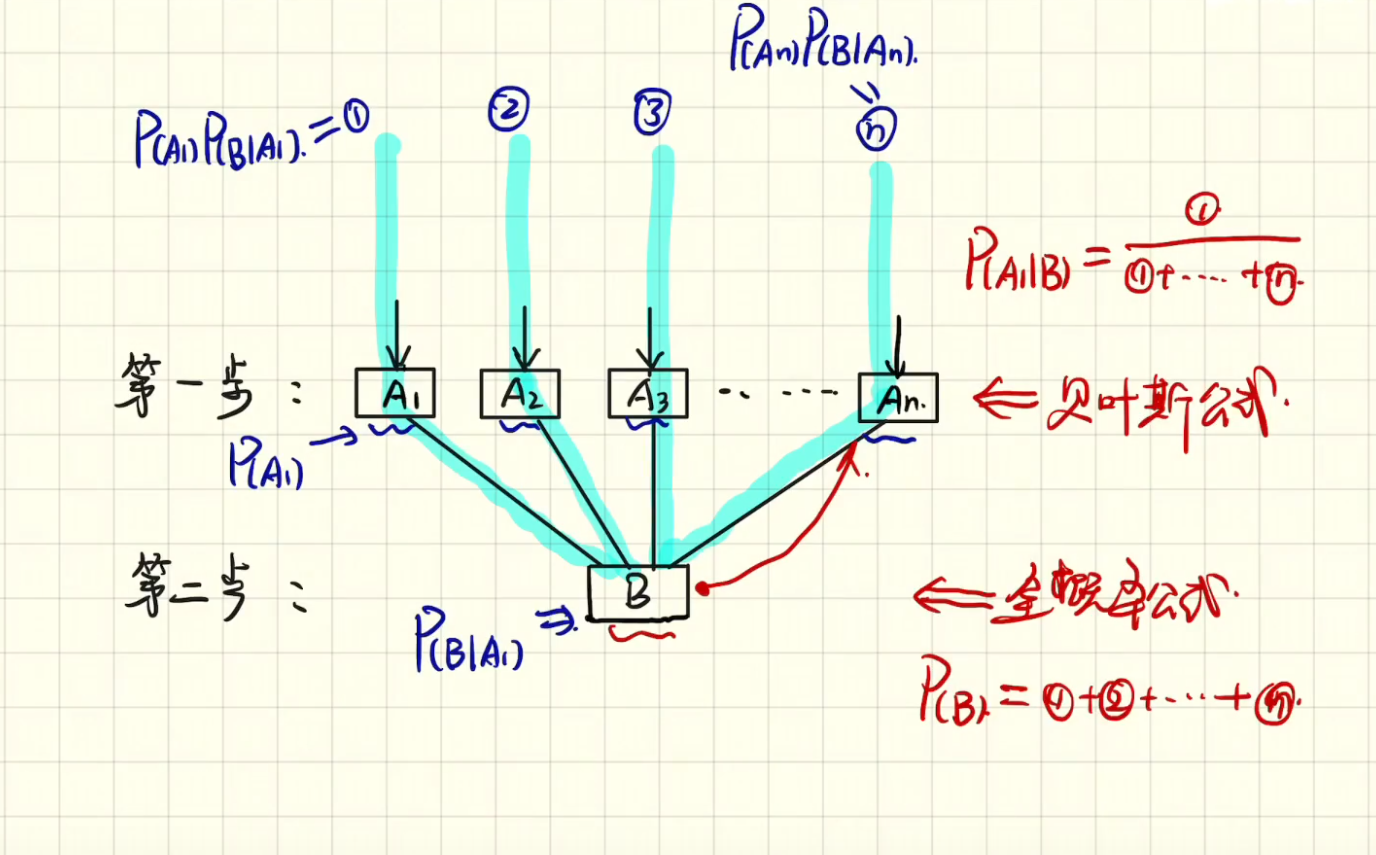 P(An)P(B|An).
P(A1)P(B|A1).=① ② ③ ⓝ
P(A1|B) = ①/(①+·····+ⓝ)
第一步： A1 A2 A3 ······ An. ⇐ 贝叶斯公式.
P(A1) →
第二步： B ⇐ 全概率公式.
P(B|A1) ⇒
P(B). = ①+②+···+ⓝ.